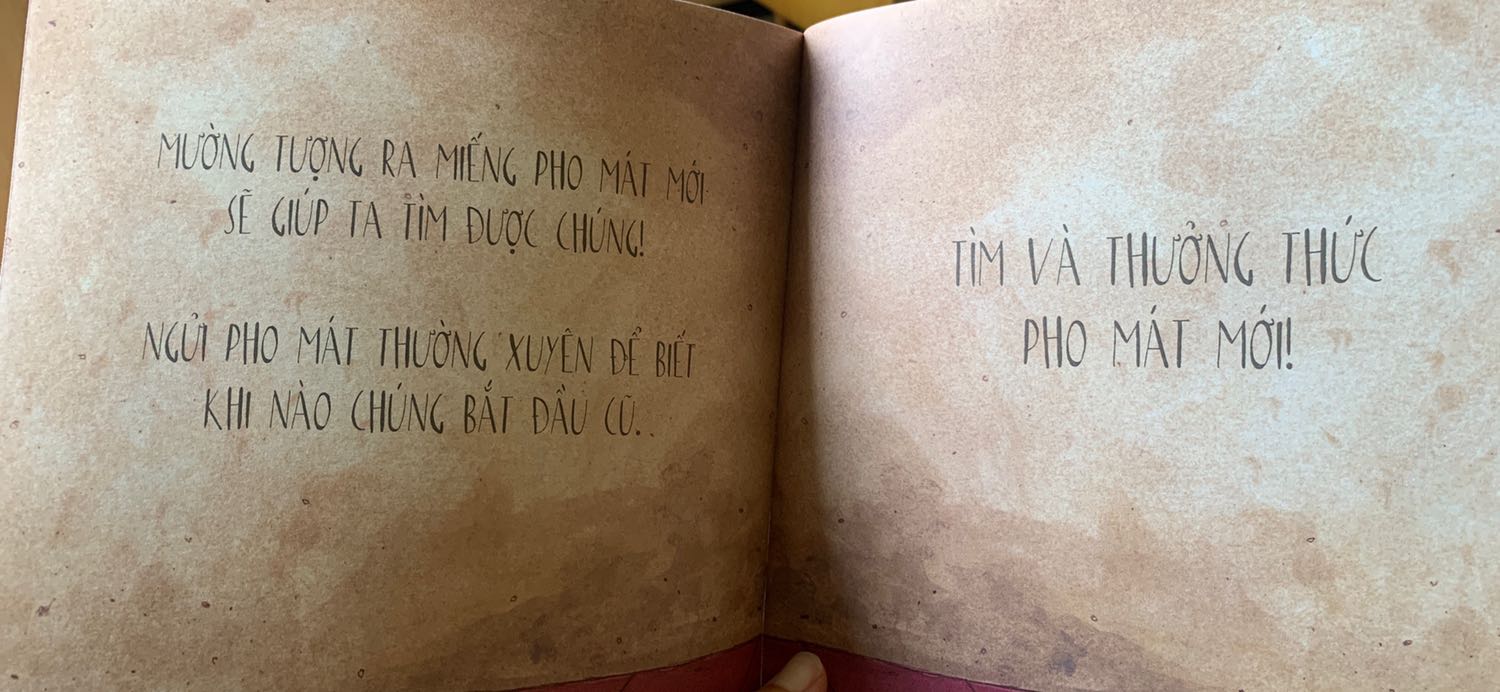 MƯỜNG TƯỢNG RA MIẾNG PHO MÁT MỚI
SẼ GIÚP TA TÌM ĐƯỢC CHÚNG!
NGỬI PHO MÁT THƯỜNG XUYÊN ĐỂ BIẾT
KHI NÀO CHÚNG BẮT ĐẦU CŨ.
TÌM VÀ THƯỞNG THỨC
PHO MÁT MỚI!